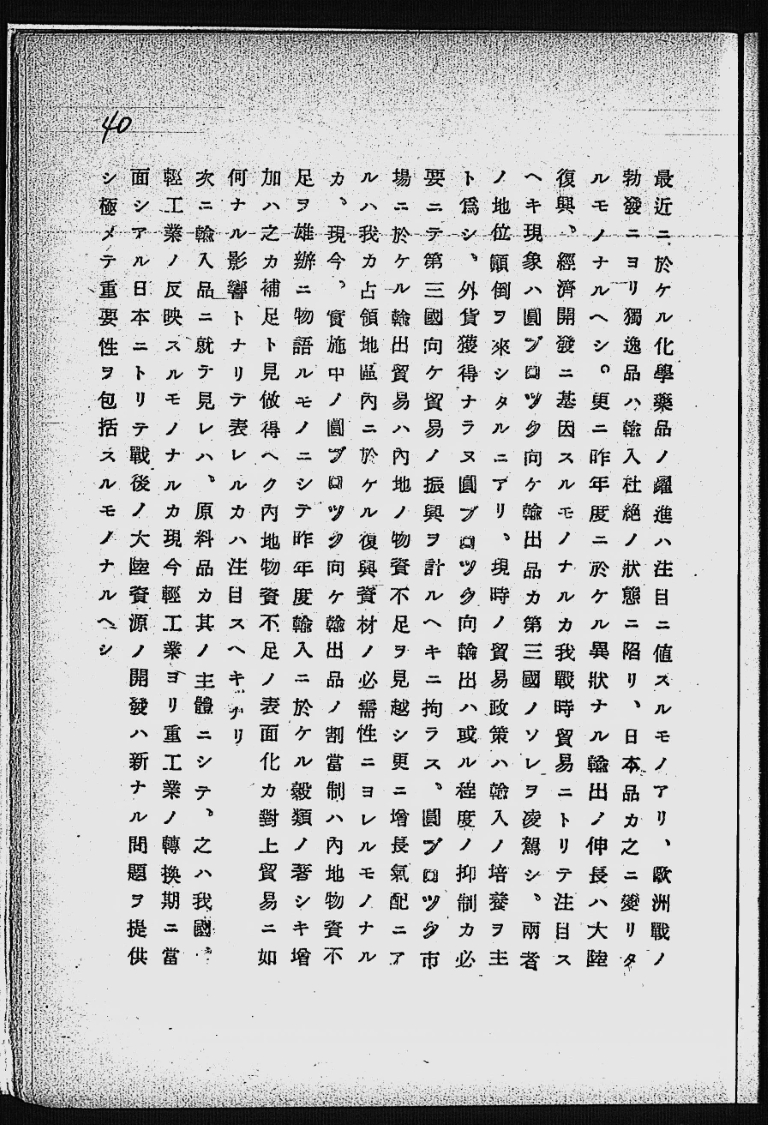 40
最近ニ於ケル化學藥品ノ躍進ハ注目ニ値スルモノアリ、歐洲戰ノ
勃發ニヨリ獨逸品ハ輸入杜絶ノ狀態ニ陷リ、日本品カ之ニ變リタ
ルモノナルヘシ。更ニ昨年度ニ於ケル異狀ナル輸出ノ伸長ハ大陸
復興、經濟開發ニ基因スルモノナルカ我戰時貿易ニトリテ注目ス
ヘキ現象ハ圓ブロツク向ケ輸出品カ第三國ノソレヲ凌駕シ、兩者
ノ地位顚倒ヲ來シタルニアリ、現時ノ貿易政策ハ輸入ノ培養ヲ主
ト爲シ、外貨獲得ナラヌ圓ブロツク向輸出ハ或ル程度ノ抑制カ必
要ニテ第三國向ケ貿易ノ振興ヲ計ルヘキニ拘ラス、圓ブロツク市
場ニ於ケル輸出貿易ハ內地ノ物資不足ヲ見越シ更ニ增長氣配ニア
ルハ我カ占領地區內ニ於ケル復興資材ノ必需性ニヨレルモノナル
カ、現今、實施中ノ圓ブロツク向ケ輸出品ノ割當制ハ內地物資不
足ヲ雄辦ニ物語ルモノニシテ昨年度輸入ニ於ケル穀類ノ著シキ增
加ハ之カ補足ト見做得ヘク內地物資不足ノ表面化カ對上貿易ニ如
何ナル影響トナリテ表レルカハ注目スヘキナリ
次ニ輸入品ニ就テ見レハ、原料品カ其ノ主體ニシテ、之ハ我國、
輕工業ノ反映スルモノナルカ現今輕工業ヨリ重工業ノ轉換期ニ當
面シアル日本ニトリテ戰後ノ大陸資源ノ開發ハ新ナル問題ヲ提供
シ極メテ重要性ヲ包括スルモノナルヘシ